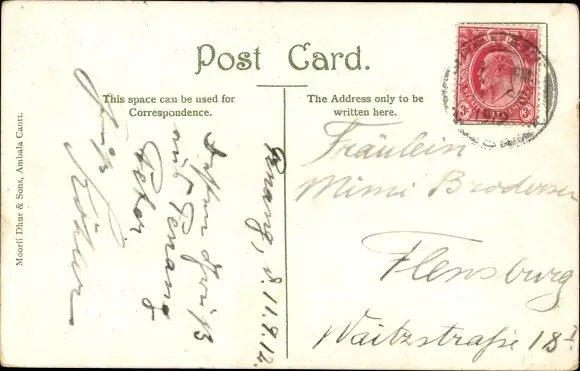 Post Card.
This space can be used for
Correspondence.
The Address only to be
written here.
Moorli Dhur & Sons, Ambala Cantt.
Penang, d. 11.9.12.
aus Penang
Fräulein
Mimi Brodersen
Flensburg
Waitzstraße 18 I